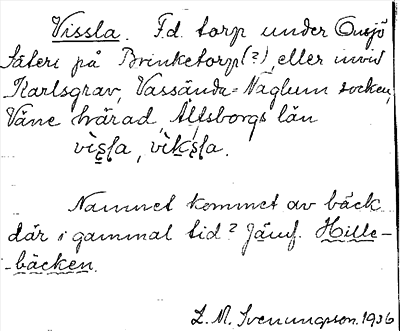 Vissla. F.d. torp under Onsjö
säteri på Brinketorp(?) eller invid
Karlsgrav, Vassända-Naglum socken,
Väne härad Älfsborgs län
vìs̨l̥a, vìks̨l̥a.
Namnet kommet av bäck
där i gammal tid? Jämf. Hille-
-bäcken.
L. M. Svenungson. 1936